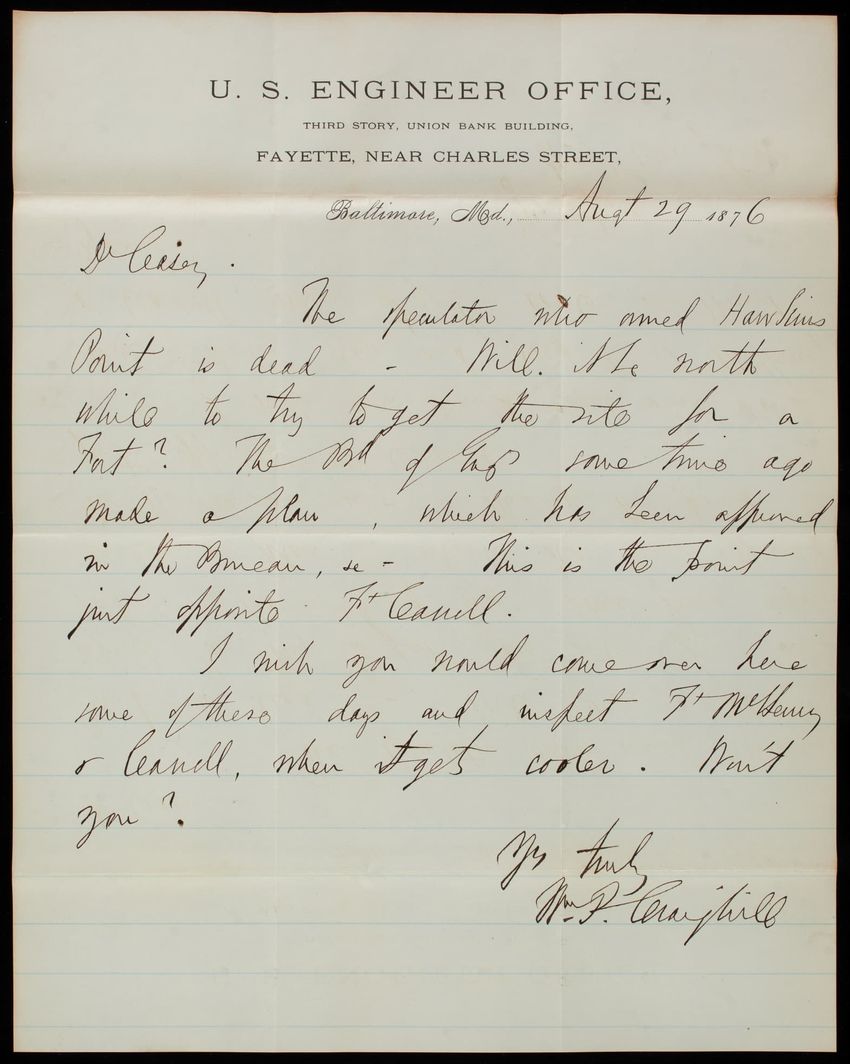 U. S. ENGINEER OFFICE,
THIRD STORY, UNION BANK BUILDING,
FAYETTE, NEAR CHARLES STREET,
Baltimore, Md., Augt 29 1876
Dr Casey.
The speculator who owned Hawkins
Point is dead - Will it be worth
while to try to get the site for a
Fort? The Bd of Engs some time ago
made a plan, which has been approved
in the Bureau, &c - This is the point
just opposite Ft Carroll.
I wish you would come over here
some of these days and inspect Ft McHenry
& Carroll, when it gets cooler. Won't
you?
Yrs truly
Wm. P. Craighill